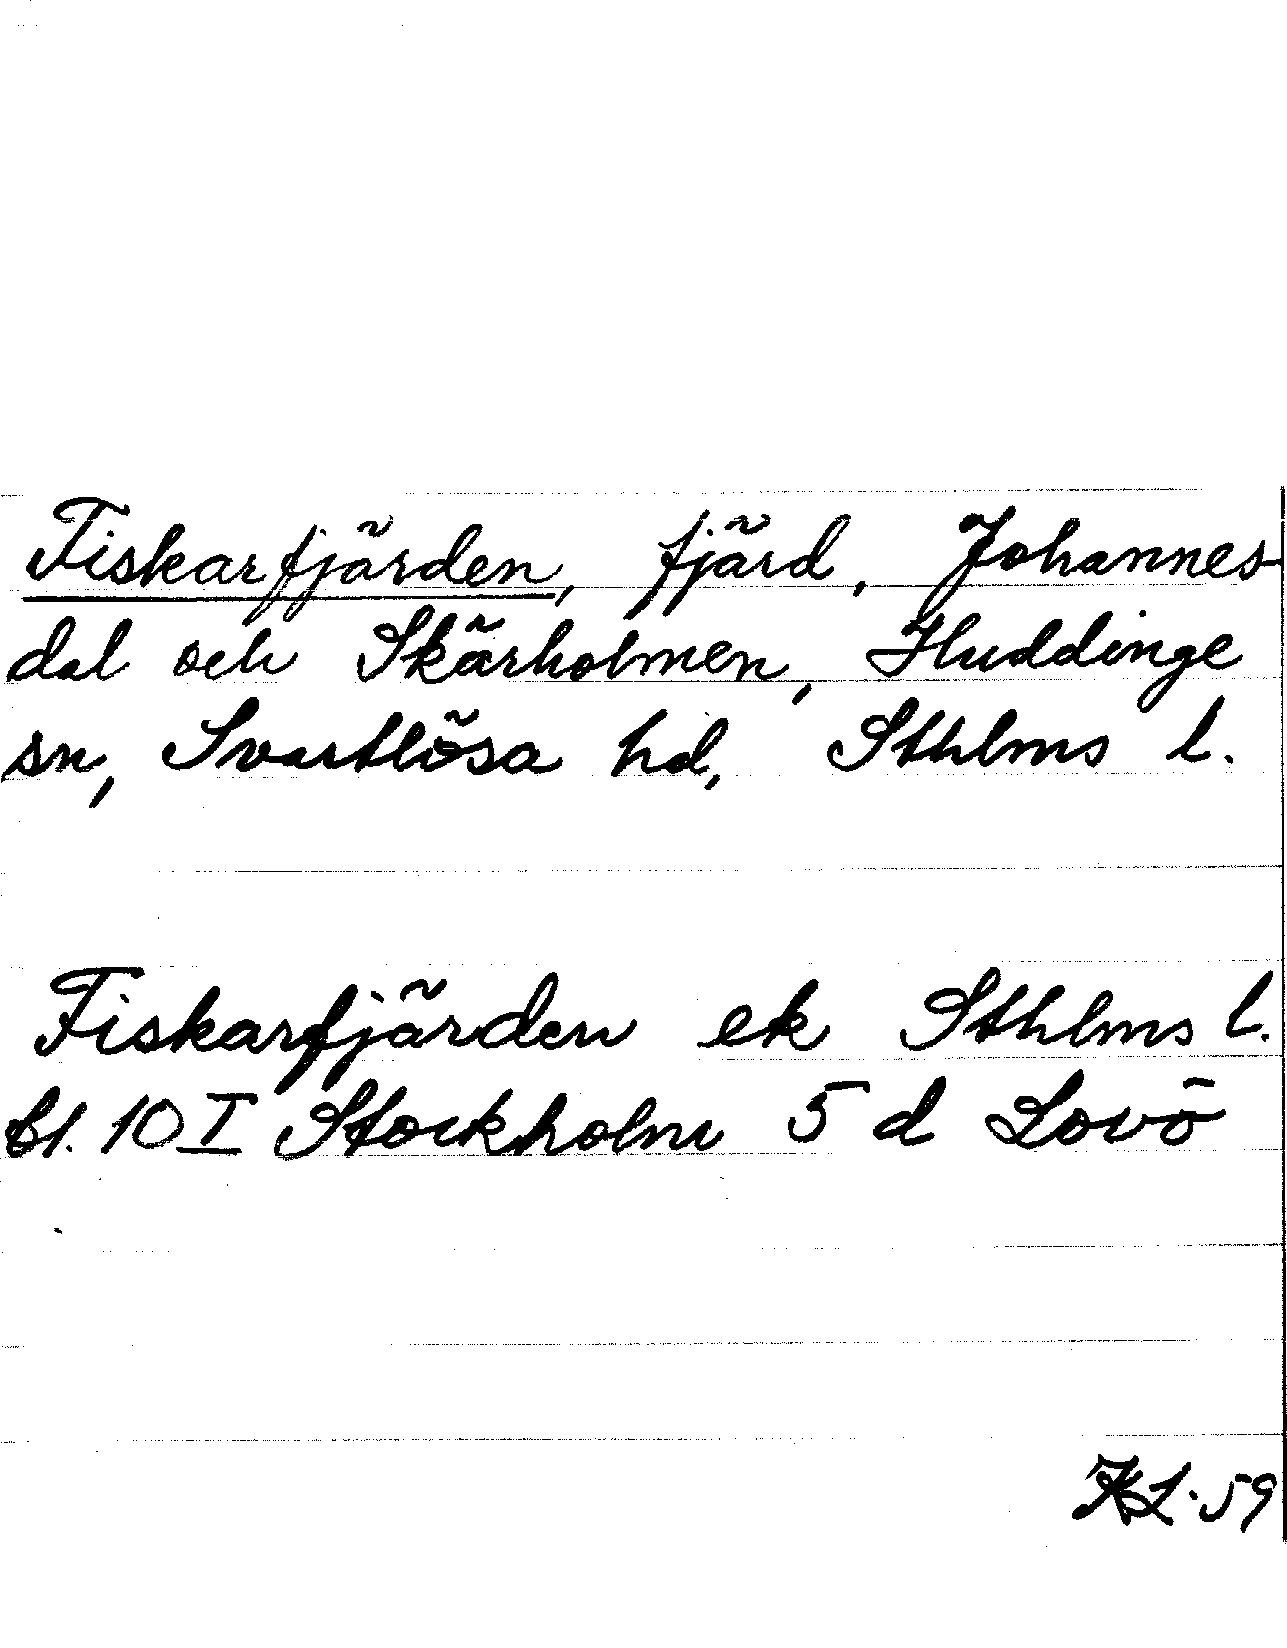 Fiskarfjärden, fjärd, Johannes-
dal och Skärholmen, Huddinge
sn, Svartlösa hd, Sthlms l.
Fiskarfjärden ek Sthlms l.
bl. 10 I Stockholm 5 d Lovö
KL. 59